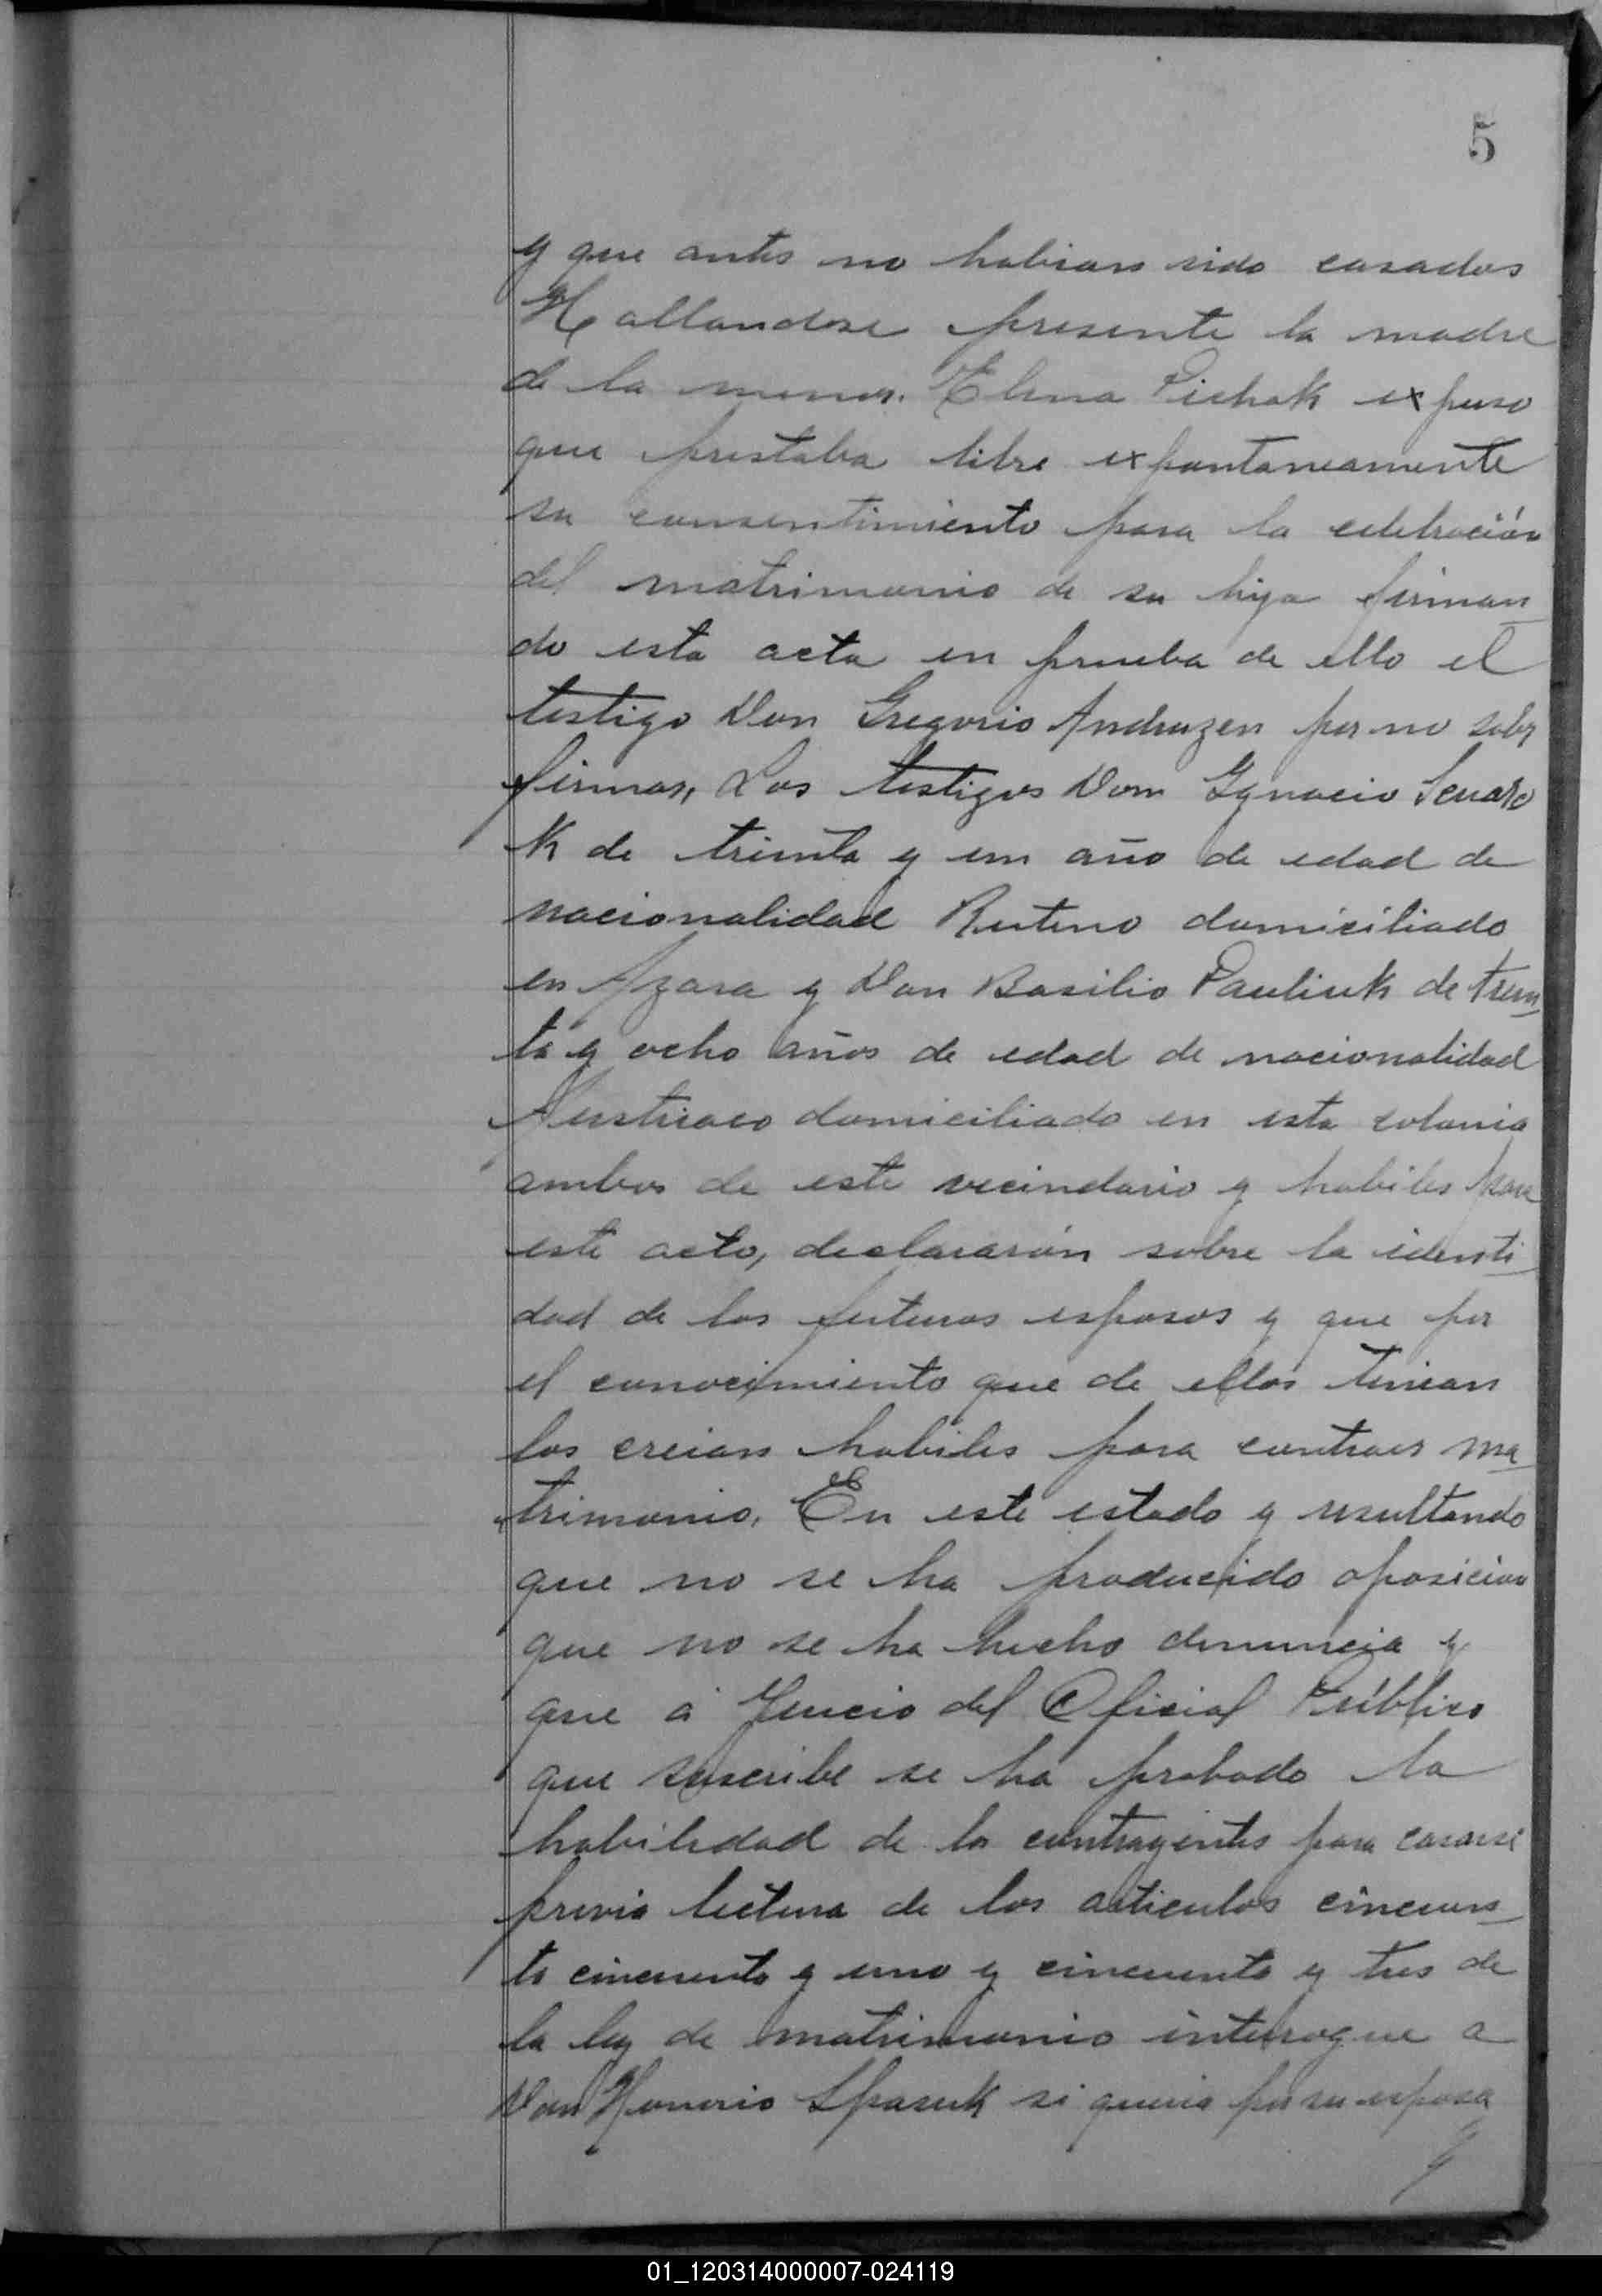 5
y que antes no habian sido casados
Hallandose presente la madre
de la menor. Elena Pichak expuso
que prestaba libre expontaneamente
su consentimiento para la celebración
del matrimonio de su hija firman
do esta acta en prueba de ello el
testigo Don Gregorio Andruzen por no saber
firmar, Los testigos Don Ignacio
k de treinta y un año de edad de
nacionalidad Ruteno domiciliado
en Azara y Don Basilio Pauliuk de trein
ta y ocho años de edad de nacionalidad
Austriaco domiciliado en esta colonia
ambos de este vecindario y habiles para
este acto, declararón sobre la identi
dad de los futuros esposos y que por
el conocimiento que de ellos tenian
los creian habiles para contraer ma
trimonio. En este estado y resultando
que no se ha producido oposicion
que no se ha hecho denuncia y
que a Juucio del Oficial Público
que suscribe se ha probado la
habilidad de lo contrayentes para casarse
previa lectura de los articulos cincuen
ta cincuenta y uno y cincuenta y tres de
la ley de matrimonio interrogue a
Don Honorio Spasuk si queria por su esposa
01_120314000007-024119